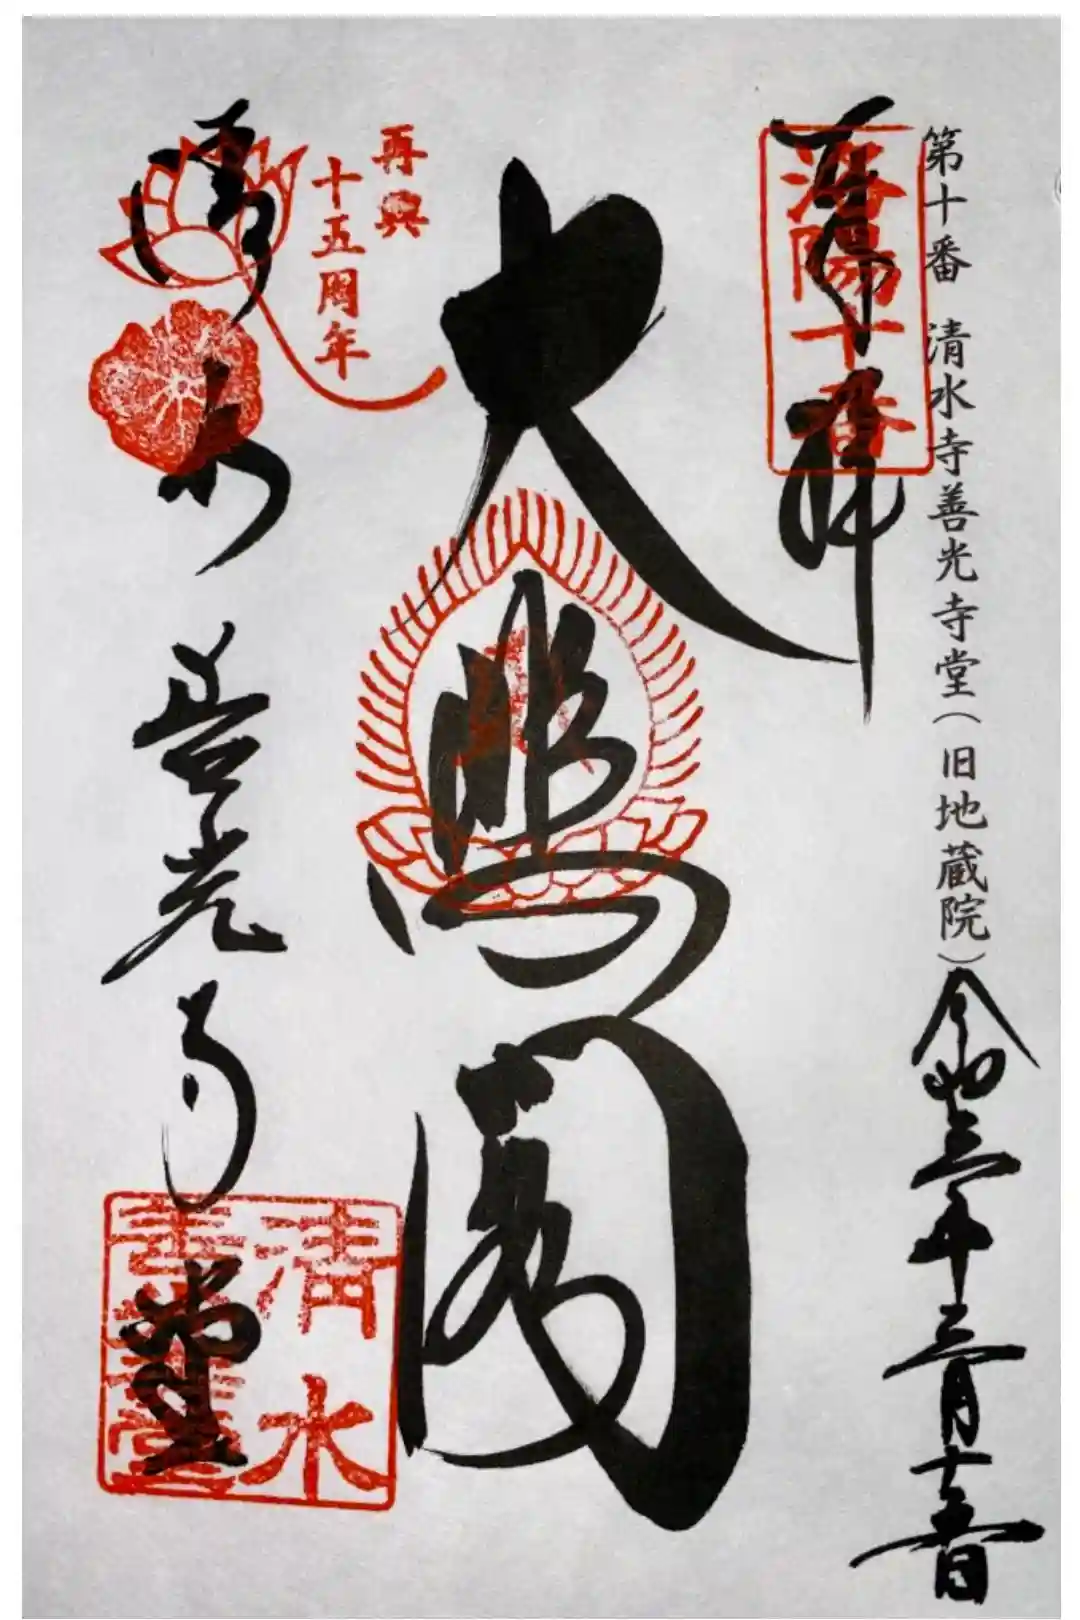 第十番 清水寺善光寺堂(旧地蔵院)
令和三年三月十五日
奉拝
洛陽十番
大悲圓
再興
十五周年
清水 善光寺堂
清水
善光寺堂